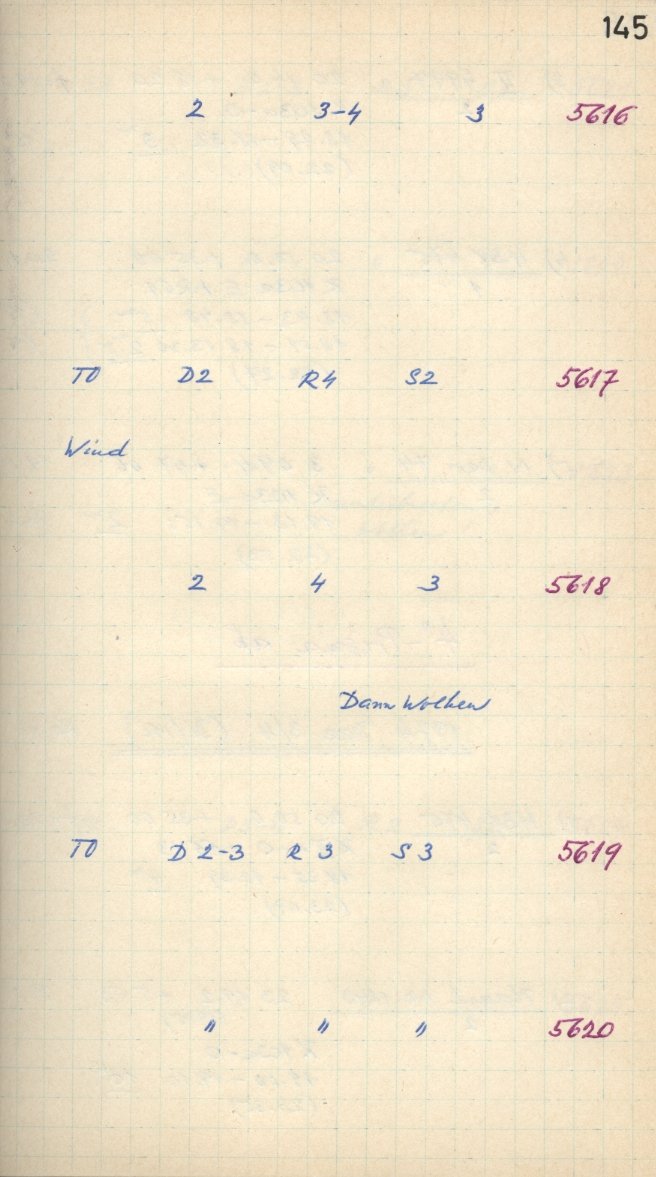 145
2 3-4 3 5616
TO D2 R4 S2 5617
Wind
2 4 3 5618
Dann Wolken
TO D 2-3 R 3 S 3 5619
" " " 5620